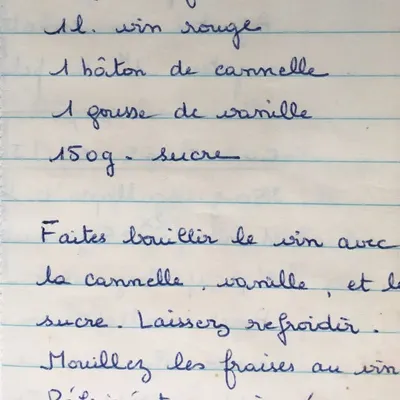 1 l. vin rouge
1 bâton de cannelle
1 gousse de vanille
150g. sucre
Faites bouillir le vin avec
la cannelle, vanille, et le
sucre. Laissez refroidir.
Mouillez les fraises au vin